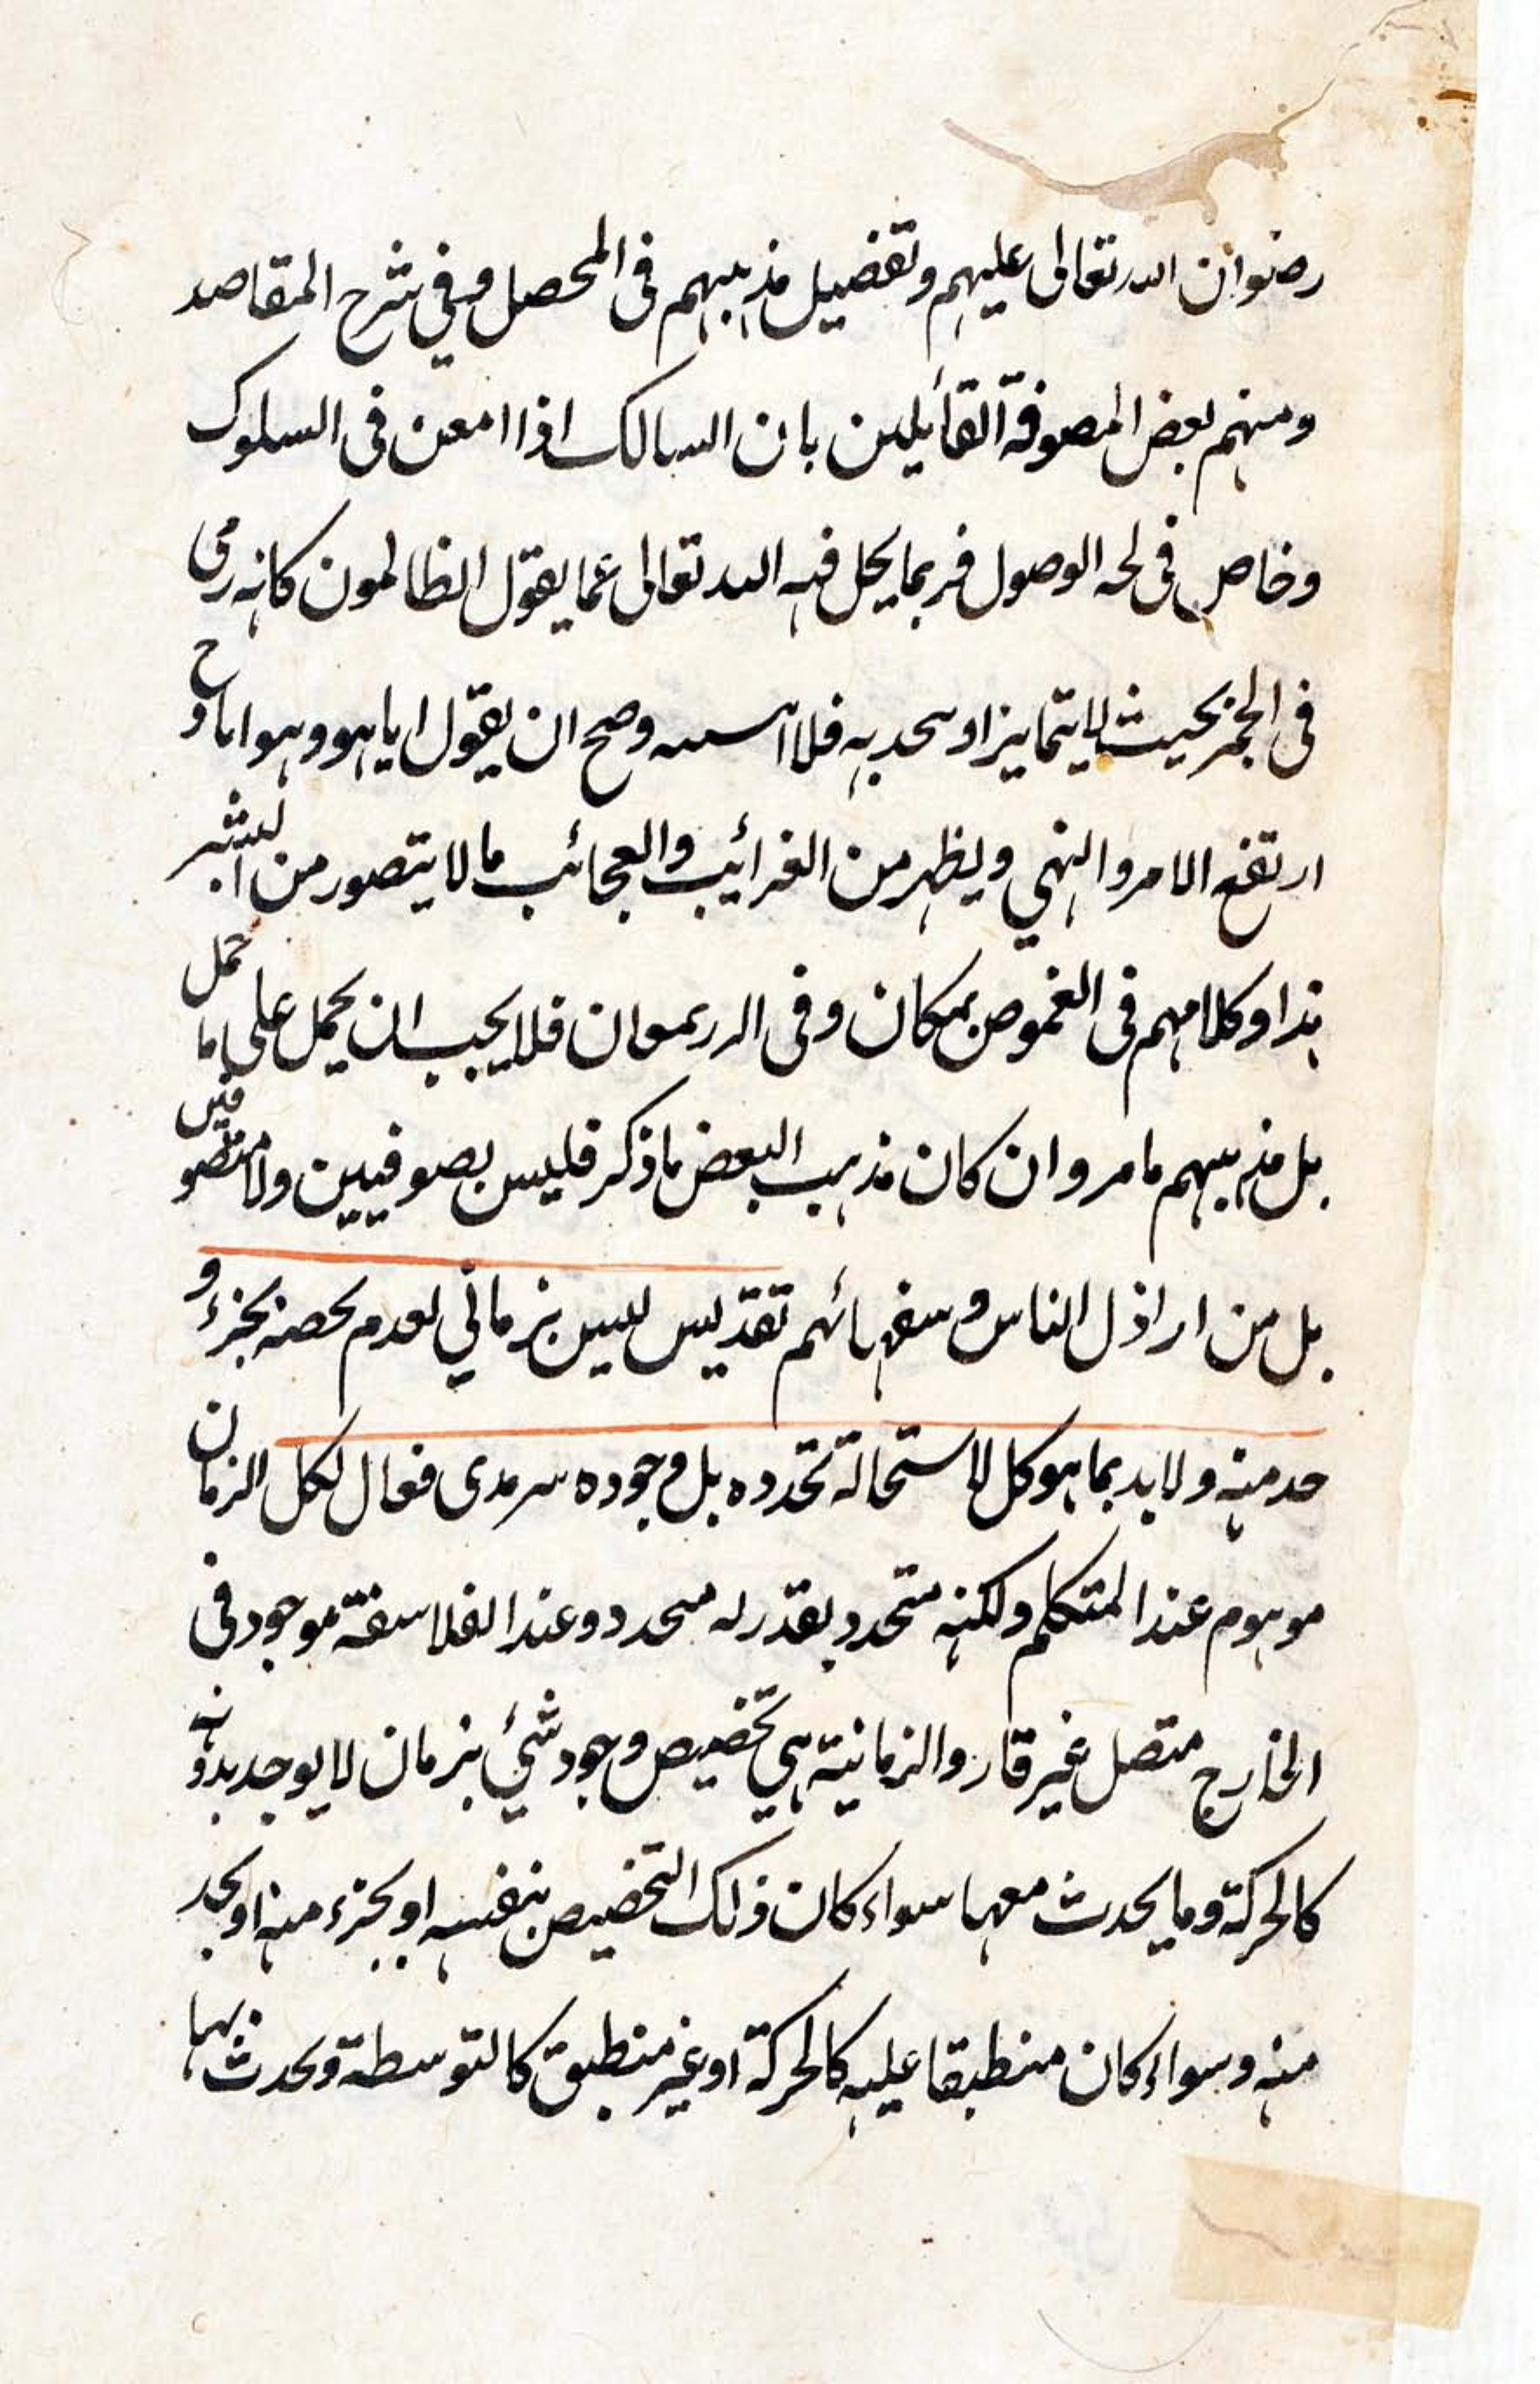 رضوان الله تعالى عليهم وتفصيل مذهبهم فى المحصل وفي شرح المقاصد
ومنهم بعض المصوفة القائيلين بان السالك اذا امعن فى السلوك
وخاض فى لجه الوصول فربما يحل فيه الله تعالى عما يقول الظالمون كانه رمى
فى الجمر بحيث لا يتمايز او يتحد به فلا اثنينية وصح ان يقول انا هو وهو انا وح
ارتفع الامر والنهي ويظهر من الغرائب والعجائب ما لا يتصور من البشر
هذا وكلامهم فى الغموض بمكان وفى الدر بموان فلا يجب ان يحمل على ما حمل
بل مذهبهم ما مر وان كان مذهب البعض ما ذكر فليس بصوفيين ولا متصوفين
بل من اراذل الناس وسفهائهم تقديس ليس بزماني لعدم تخصه بجزء و
حد منه ولا بد بما هو كل لاستحالة تجدده بل وجوده سرمدى فعال لكل الزمان
موهوم عند المتكلم ولكنه متجدد يقدر له متجدد وعند الفلاسفة موجود فى
الخارج متصل غير قار والزمانية هي تخصيص وجود شئ بزمان لا يوجد بدونه
كالحركة وما يحدث معها سواء كان ذلك التخصيص بنفسه او بجزء منه او بحد
منه وسواء كان منطبقا عليه كالحركة او غير منطبق كالتوسطة ويحدث بها